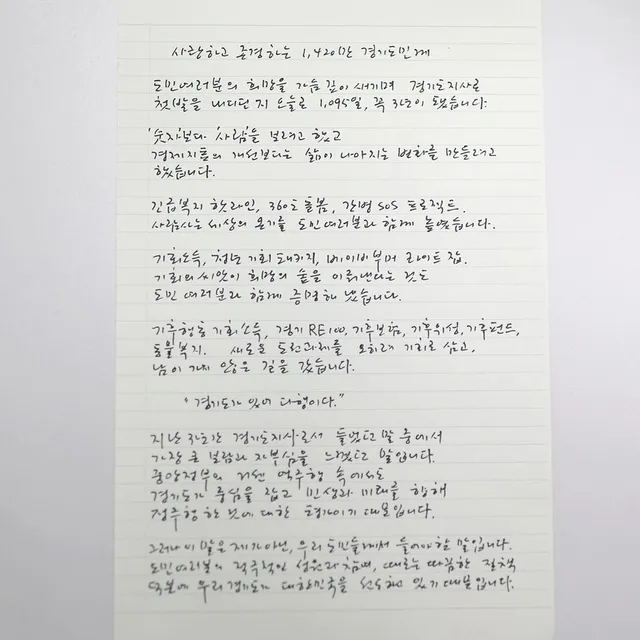 사랑하고 존경하는 1,420만 경기도민께
도민여러분의 희망을 가슴 깊이 새기며 경기도지사로
첫발을 내디딘 지 오늘로 1,095일, 꼭 3년이 됐습니다.
'숫자'보다 '사람'을 보려고 했고
경제지표의 개선보다는 삶이 나아지는 변화를 만들려고
했습니다.
긴급복지 핫라인, 360도 돌봄, 간병 SOS 프로젝트.
사람사는 세상의 온기를 도민여러분과 함께 높였습니다.
기회소득, 청년 기회 패키지, 베이비부머 라이트 잡.
기회의 씨앗이 희망의 숲을 이뤄낸다는 것도
도민 여러분과 함께 증명해 냈습니다.
기후행동 기회소득, 경기 RE100, 기후보험, 기후위성, 기후펀드,
동물복지. 새로운 도전과제를 오히려 기회로 삼고,
남이 가지 않은 길을 갔습니다.
"경기도가 있어 다행이다."
지난 3년간 경기도지사로서 들었던 말 중에서
가장 큰 보람과 자부심을 느꼈던 말입니다.
중앙정부의 거센 역주행 속에서도
경기도가 중심을 잡고 민생과 미래를 향해
정주행 한 것에 대한 평가이기 때문입니다.
그러나 이 말은 제가 아닌, 우리 도민들께서 들어야 할 말입니다.
도민여러분의 적극적인 성원과 참여, 때로는 따끔한 질책
덕분에 우리 경기도가 대한민국을 선도하고 있기 때문입니다.